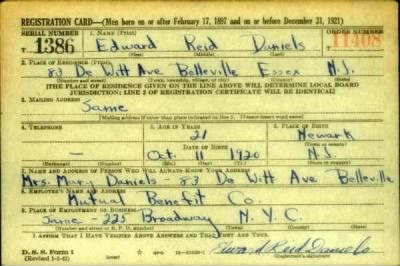 REGISTRATION CARD—(Men born on or after February 17, 1897 and on or before December 31, 1921)
SERIAL NUMBER 1. NAME (Print) ORDER NUMBER
T 1386 Edward Reid Daniels 11408
(First) (Middle) (Last)
2. PLACE OF RESIDENCE (Print)
83 De Witt Ave Belleville Essex N.J.
(Number and street) (Town, township, village, or city) (County) (State)
[THE PLACE OF RESIDENCE GIVEN ON THE LINE ABOVE WILL DETERMINE LOCAL BOARD
JURISDICTION; LINE 2 OF REGISTRATION CERTIFICATE WILL BE IDENTICAL]
3. MAILING ADDRESS
Same
[Mailing address if other than place indicated on line 2. If same insert word same]
4. TELEPHONE 5. AGE IN YEARS 6. PLACE OF BIRTH
21 Newark
DATE OF BIRTH (Town or county)
Oct. 11 1920 N.J.
(Exchange) (Number) (Mo.) (Day) (Yr.) (State or country)
7. NAME AND ADDRESS OF PERSON WHO WILL ALWAYS KNOW YOUR ADDRESS
Mrs. Mary Daniels - 83 De Witt Ave Belleville
8. EMPLOYER'S NAME AND ADDRESS
Mutual Benefit Co.
9. PLACE OF EMPLOYMENT OR BUSINESS
Same - 225 Broadway N.Y.C.
(Number and street or R. F. D. number) (Town) (County) (State)
I AFFIRM THAT I HAVE VERIFIED ABOVE ANSWERS AND THAT THEY ARE TRUE.
D. S. S. Form 1 Edward Reid Daniels
(Revised 1-5-42) GPO (Registrant's signature)